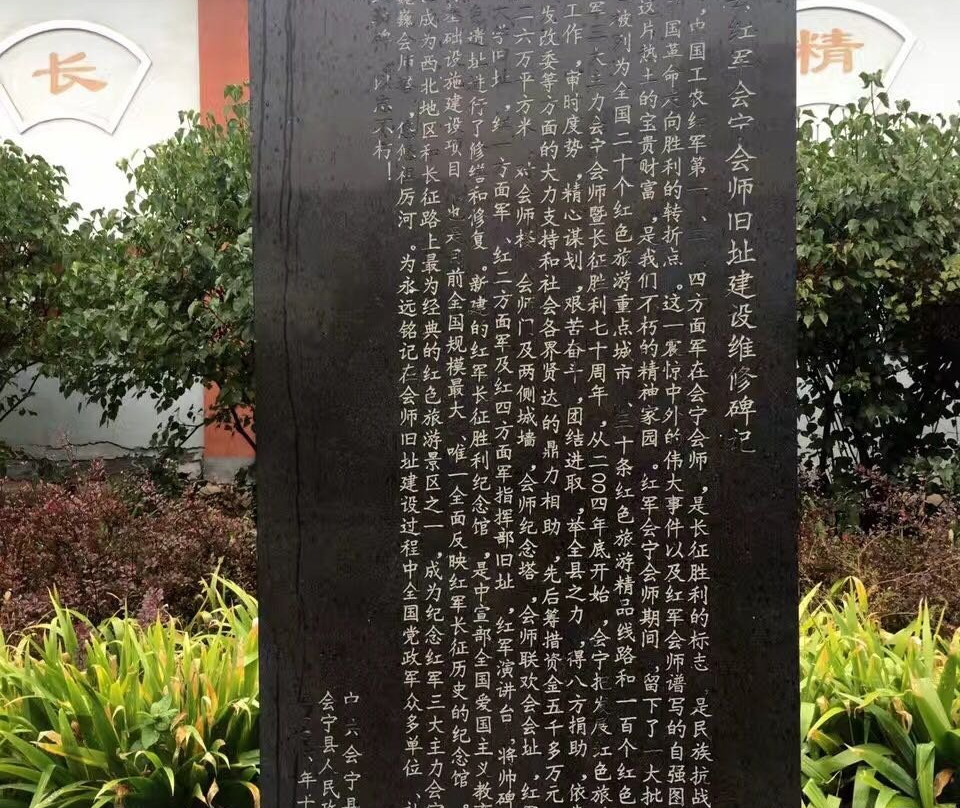 红军会宁会师旧址建设维修碑记
中国工农红军第一、二、四方面军在会宁会师，是长征胜利的标志，是民族抗战
国革命走向胜利的转折点。这一震惊中外的伟大事件以及红军会师谱写的自强图
这片热土的宝贵财富，是我们不朽的精神家园。红军会宁会师期间，留下了一大批
被列为全国二十个红色旅游重点城市、三十条红色旅游精品线路和一百个红色
军三大主力会宁会师暨长征胜利七十周年，从二〇〇四年底开始，会宁把发展红色旅
工作，审时度势，精心谋划，艰苦奋斗，团结进取，举全县之力，得八方捐助，依
发改委等方面的大力支持和社会各界贤达的鼎力相助，先后筹措资金五千多万元
二六万平方米，对会师楼、会师门及两侧城墙，会师纪念塔，会师联欢会会址，红
旧址，红一方面军、红二方面军及红四方面军指挥部旧址，红军演讲台，将帅碑
遗址进行了修缮和修复。新建的红军长征胜利纪念馆，是中宣部全国爱国主义教育
基础设施建设项目，也是目前全国规模最大、唯一全面反映红军长征历史的纪念馆。
成为西北地区和长征路上最为经典的红色旅游景区之一，成为纪念红军三大主力会宁
巍巍会师塔，悠悠祖厉河。为永远铭记在会师旧址建设过程中全国党政军众多单位、
以志不朽！
中共会宁县
会宁县人民政
年十
长
精